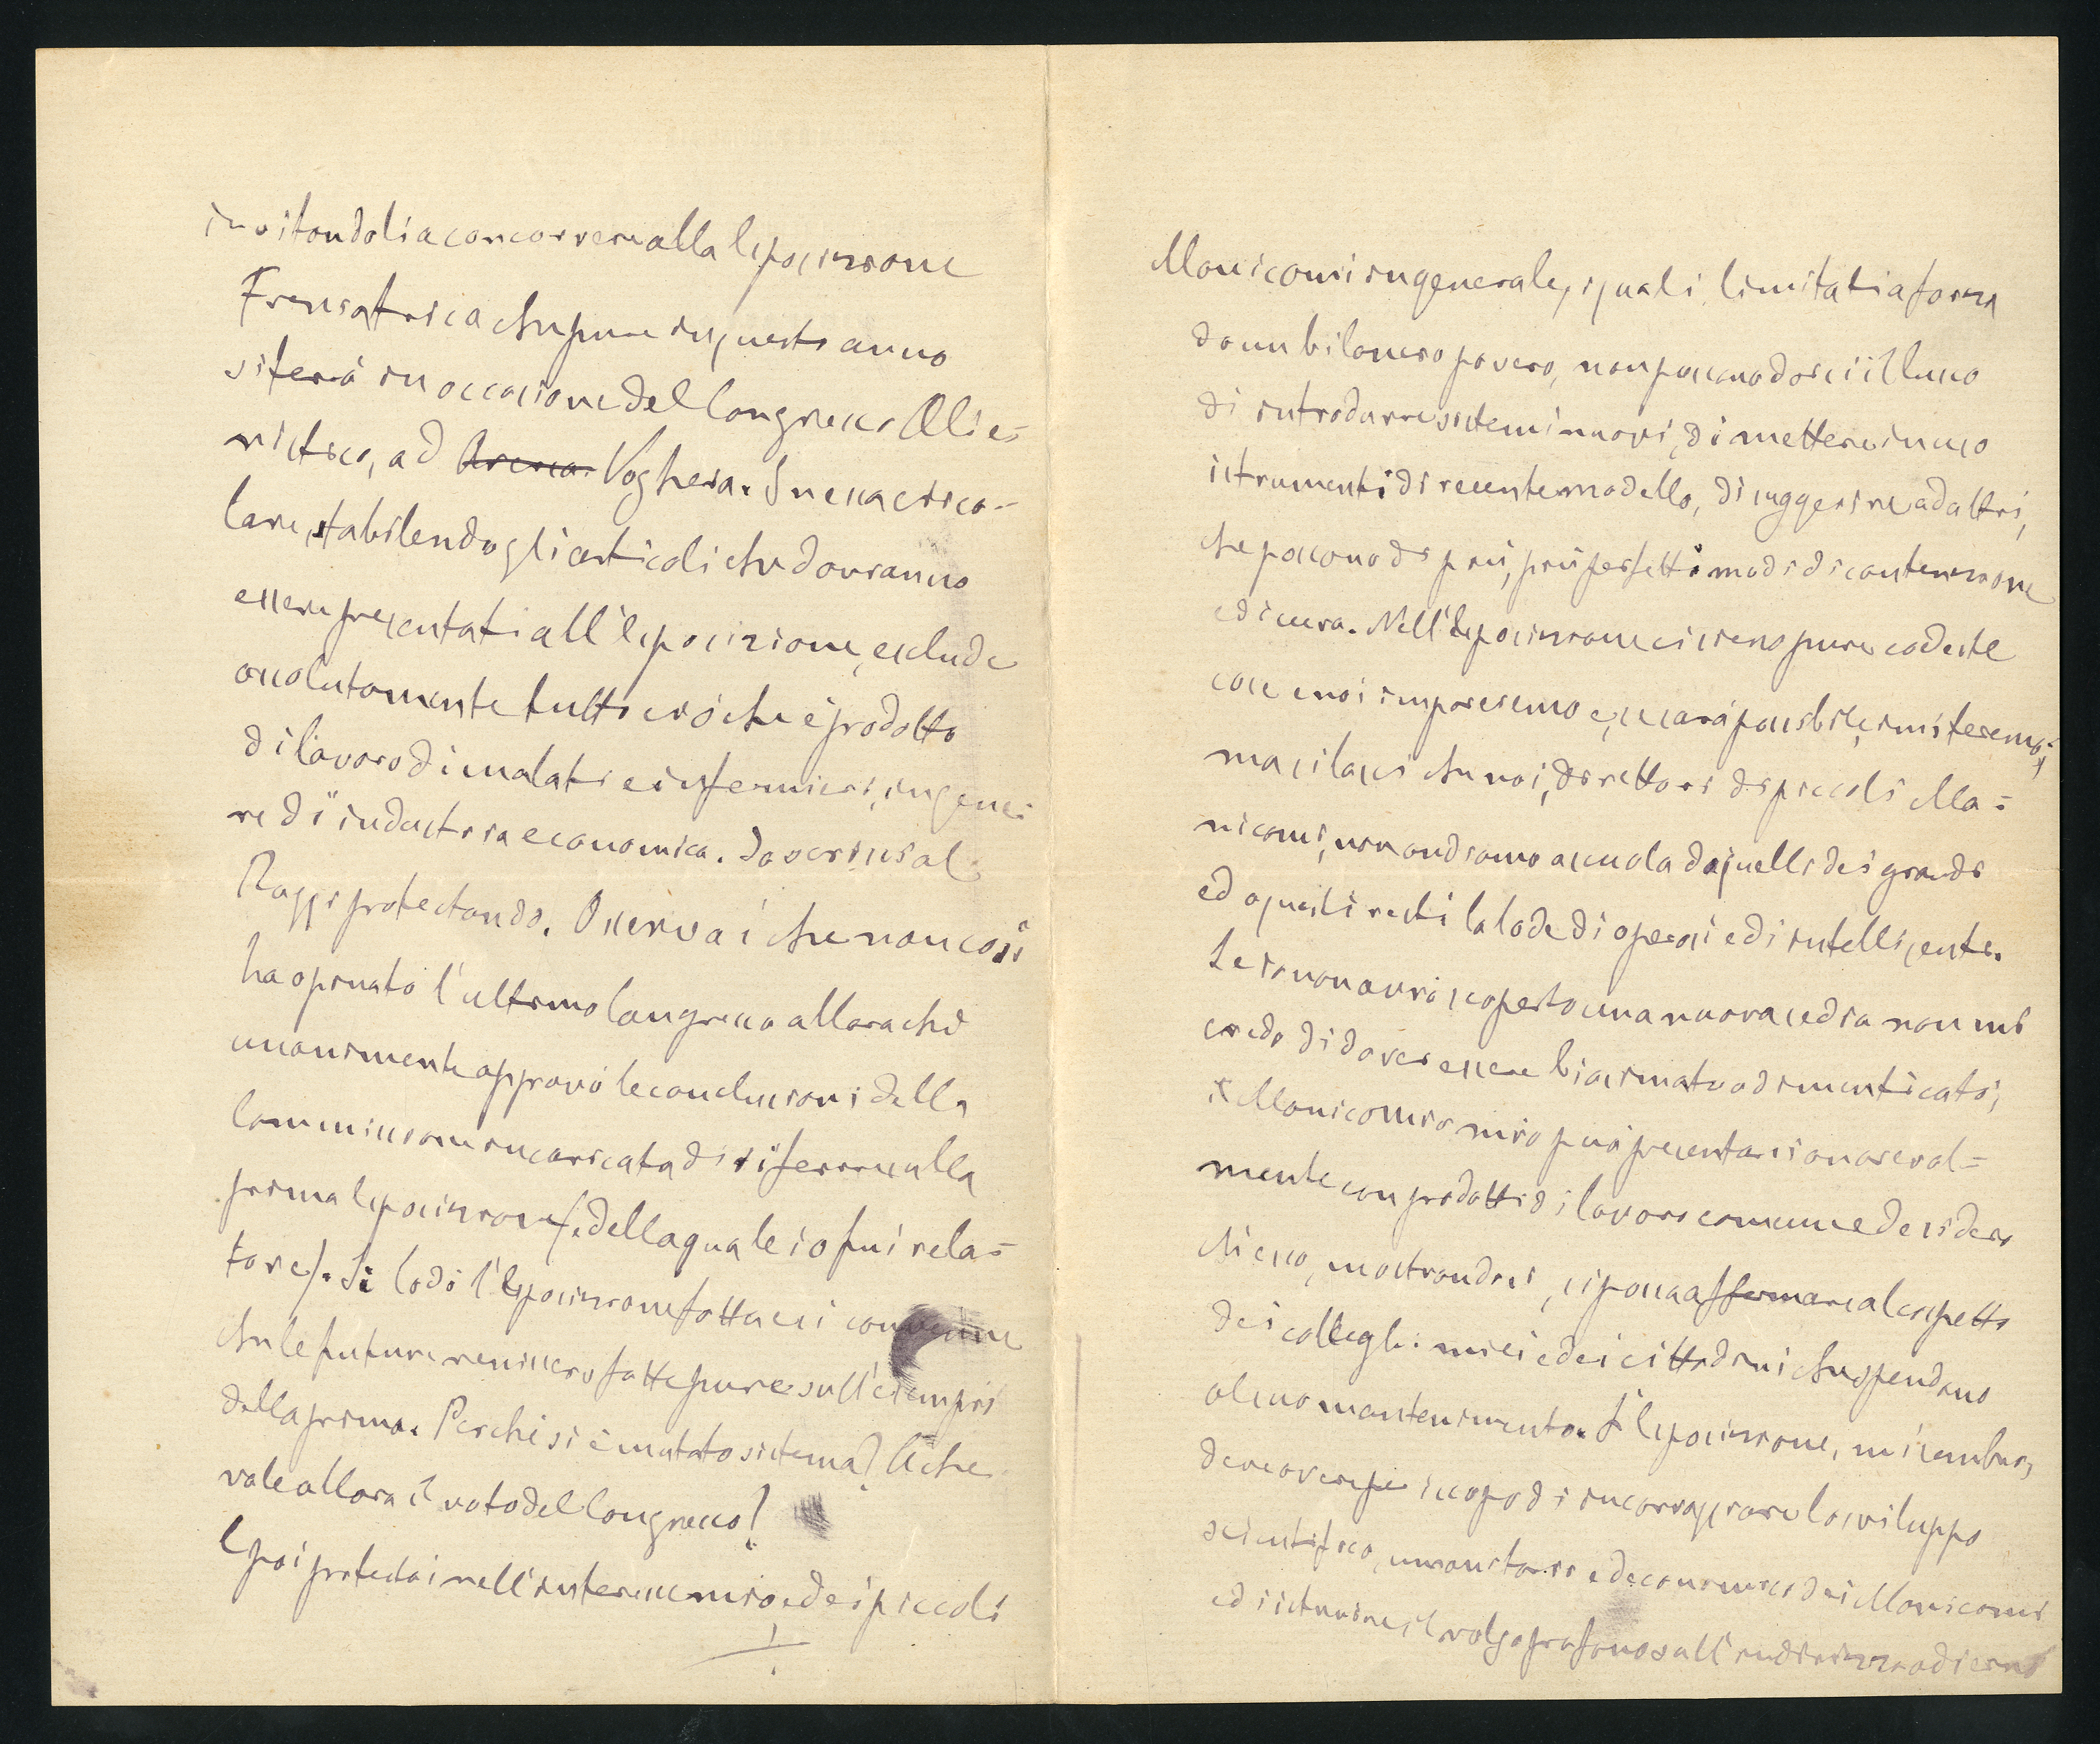 invitandoli a concorrere alla Esposizione
Freniatrica che pure in questo anno
si ferà in occasione del Congresso Alie=
nistico, ad Voghera. In essa circo=
lare, stabilendo gli articoli che dovranno
essere presentati all'Esposizione, esclude
assolutamente tutto ciò che è prodotto
di lavoro di malati e infermieri, in gene=
re di industria economica. Io scrissi al
Raggi protestando. Osservai che non così
ha opinato l'ultimo Congresso allora che
unanimente approvò le conclusioni della
Commissione incaricata di riferire alla
prima Esposizione (della quale io fui rela=
tore). Si lodò l'Esposizione fatta e si convenne
che le future venissero fatte pure sull'esempio
della prima. Perchè si è mutato sistema? A che
vale allora il voto del Congresso?
E poi protestai nell'interesse mio e dei piccoli
Manicomi in generale, i quali limitati a forza
da un bilancio povero, non possono darsi il lusso
di introdurre sistemi nuovi, di mettere in uso
istrumenti di recente modello, di suggerire ad altri,
che possono di più, più perfetti modi di contenzione
e di cura. Nell'Esposizione ci sieno pure codeste
cose e noi impareremo e, se sarà possibile, imiteremo;
ma si lasci che noi, direttori di piccoli Ma=
nicomi, non andiamo a scuola da quelli dei grandi
ed a questi resti la lode di operosi e di intelligenti.
Se io non avrò scoperto una nuova sedia non mi
credo di dover essere biasimato o dimenticato;
il Manicomio mio può presentarsi onoreval=
mente con prodotti di lavoro comune e desidero
che esso, mostrandosi, si possa affermare al cospetto
dei colleghi miei e dei cittadini che spendono
al suo mantenimento. L'Esposizione, mi sembra,
deve avere per iscopo di incoraggiare lo sviluppo
scientifico, umanitario ed economico dei Manicomi
ed istruire il volgo profano sull'indirizzo odierno